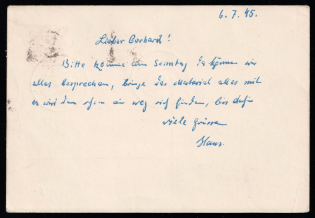 6.7.45.
Lieber Gerhard!
Bitte komme am Sonntag. Da können wir
alles besprechen, bringe das Material alles mit
es wird dann schon ein weg sich finden, bis dahin
viele Grüsse
Hans.